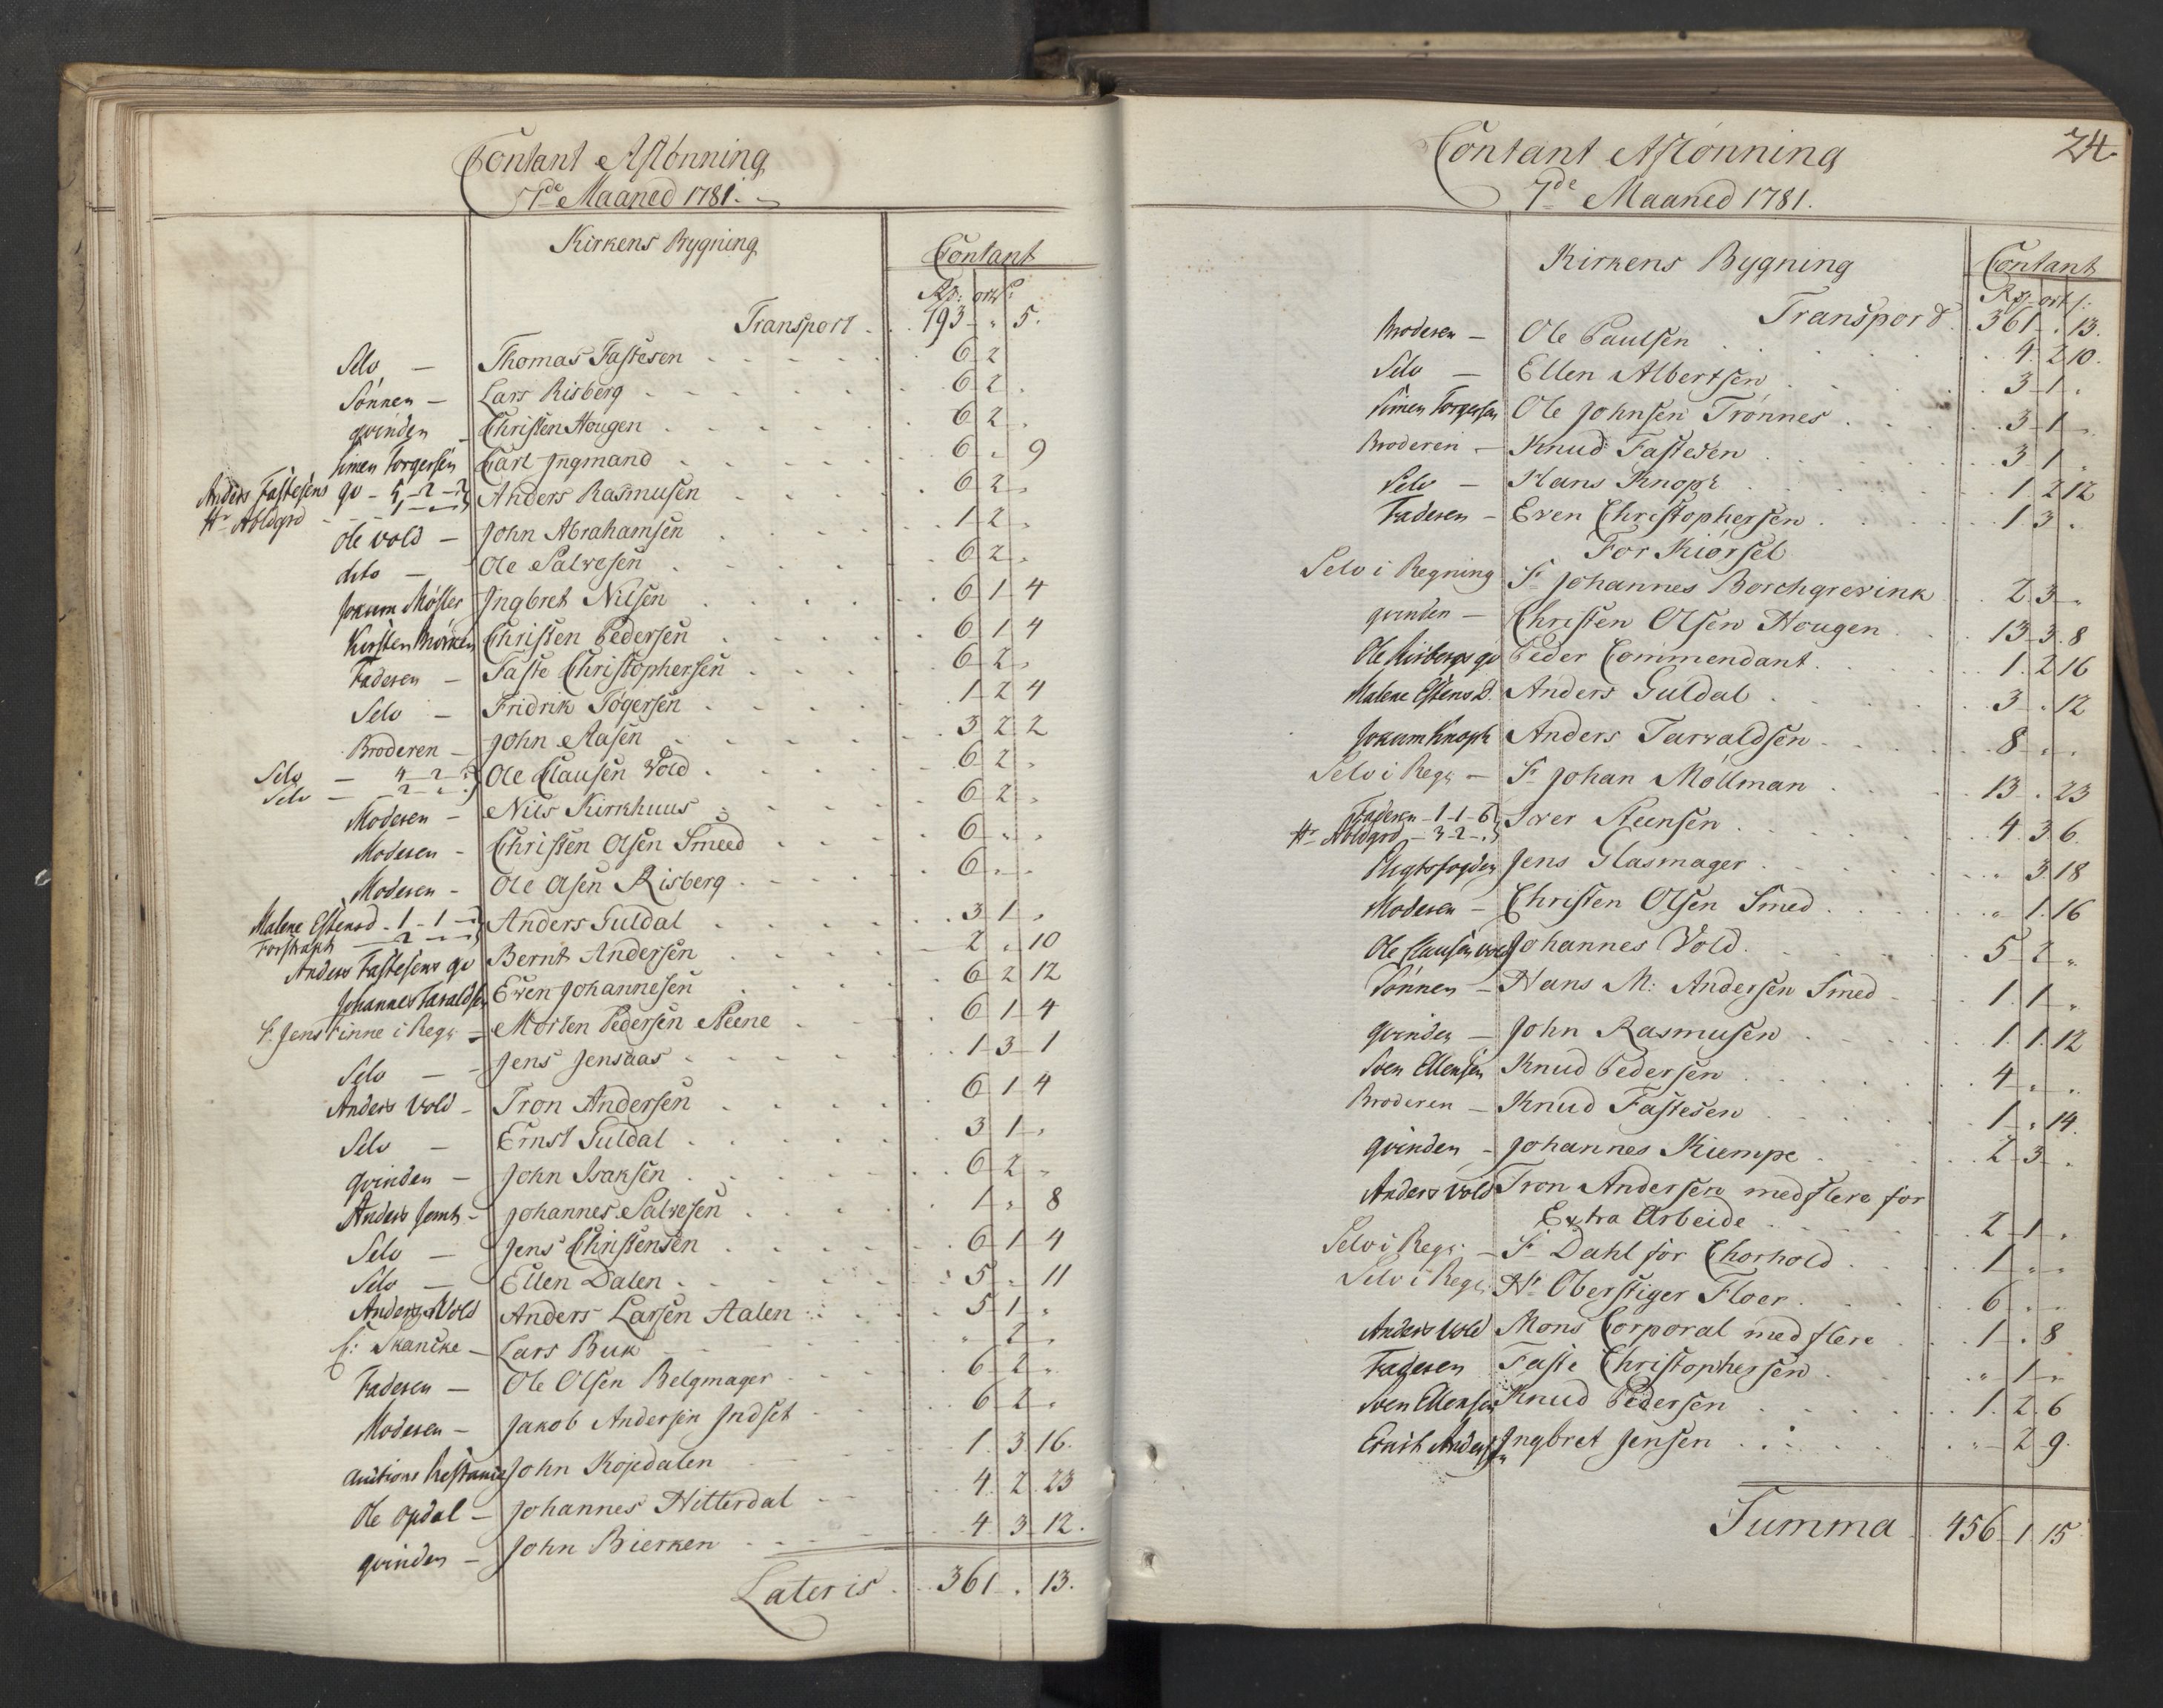 Contant Aflönning
7de Maaned 1781.
Kirkens Bygning Contant
Rd: ort s:
Transport . . 193 - " 5.
Selv — Thomas Fastesen 6 2
Sönnen — Lars Risberg 6 2 .
qvinden — Christen Hougen 6 2 .
Simen Torgersen Carl Jngmand 6 " 9
Anders Fastesens qv - 5 - 2 - "
Hr Abldgrd - - 1 - " - " Anders Rasmusen 6 2 "
Ole Vold — John Abrahamsen 1 2 "
dito — Ole Salvesen 6 2 "
Jocum Möller Jngbret Nilsen 6 1 4
Kirsten Börken Christen Pedersen 6 1 4
Faderen — Faste Christophersen 6 2 "
Selv — Fridrik Tögersen 1 2 4
Broderen — John Aasen 3 2 2
Selv — 4 - 2 - "
Selv — 2 - " - " Ole Clausen Vold 6 2 "
Moderen — Nils Kirkhuus 6 2 "
Moderen - Christen Olsen Smeed 6 " "
Moderen - Ole Olsen Risberg 6 " "
Malene Estensd. 1 - 1 - "
Forstrakt — 2 - " - " Anders Guldal 3 1 "
Anders Fastesens qv Bernt Andersen 2 " 10
Johannes Tavaldsen Even Johannesen 6 2 12
Sr. Jens Finne i Regn — Morten Pedersen Reene 6 1 4
Selv — Jens Jensaas 1 3 1
Anders Vold - Tron Andersen 6 1 4
Selv — Ernst Guldal 3 1 "
qvinden — John Isaksen 6 2 "
Anders Jemt - Johannes Salvesen 1 " 8
Selv — Jens Christensen 6 1 4
Selv — Ellen Dalen 5 " 11
Anders Vold Anders Larsen Aalen 5 1 "
Sr: Skancke — Lars Buk " 2 "
Faderen — Ole Olsen Belgmager 6 2 "
Moderen — Jakob Andersen Jndset 6 2 "
Auctions Restance John Kojedalen 1 3 16.
Ole Opdal — Johannes Hitterdal 4 2 23
qvinden — John Bierken 4 3 12.
Lateris . . 361 . 13.
24.
Contant Aflönning
7de Maaned 1781.
Kirkens Bygning Contant
Rd: ort s:
Transport 361 " 13.
Broderen — Ole Paulsen 4 2 10.
Selv — Ellen Albertsen 3 1 "
Simen Torgersen Ole Johnsen Trönnes 3 1 "
Broderen — Knud Fastesen 3 1 "
Selv — Hans Knoph 1 2 12
Faderen — Even Christophersen 1 3 "
For Kiörsel
Selv i Regning Sr Johannes Borchgrevink 2 3 "
qvinden — Christen Olsen Hougen 13 3 8
Ole Risbergs qv Peder Commendant 1 2 16
Malene Estens D. Anders Guldal 3 " 12
Jocum Knoph Anders Tarvaldsen 8 " "
Selv i Regn — Sr Johan Möllman 13 . 23
Faderen - 1 - 1 - 6
Hr Abldgrd - 3 - 2 - " Iver Reensen 4 3 6.
Slugtsfogden Jens Glasmager " 3 18
Moderen — Christen Olsen Smed " 1 16
Ole Clausen Vold Johannes Vold 5 2 "
Sönnen — Hans M: Andersen Smed 1 1 "
qvinden — John Rasmusen 1 1 12
Sven Ellensen Knud Pedersen 4 " "
Broderen — Knud Fastesen 1 " 14.
qvinden — Johannes Kiempe 2 3 "
Anders Vold Tron Andersen med flere for
Extra Arbeide 2 1 "
Selv i Regn: — Sr Dahl for Chorhold 1 " "
Selv i Regn: Hr Oberstiger Floer 6 " "
Anders Vold Mons Corporal med flere 1 " 8
Faderen Faste Christophersen " 1 "
Sven Ellensen Knud Pedersen 1 2 6
Ernst Andersen Jngbret Jensen " 2 9.
Summa 456 1 15